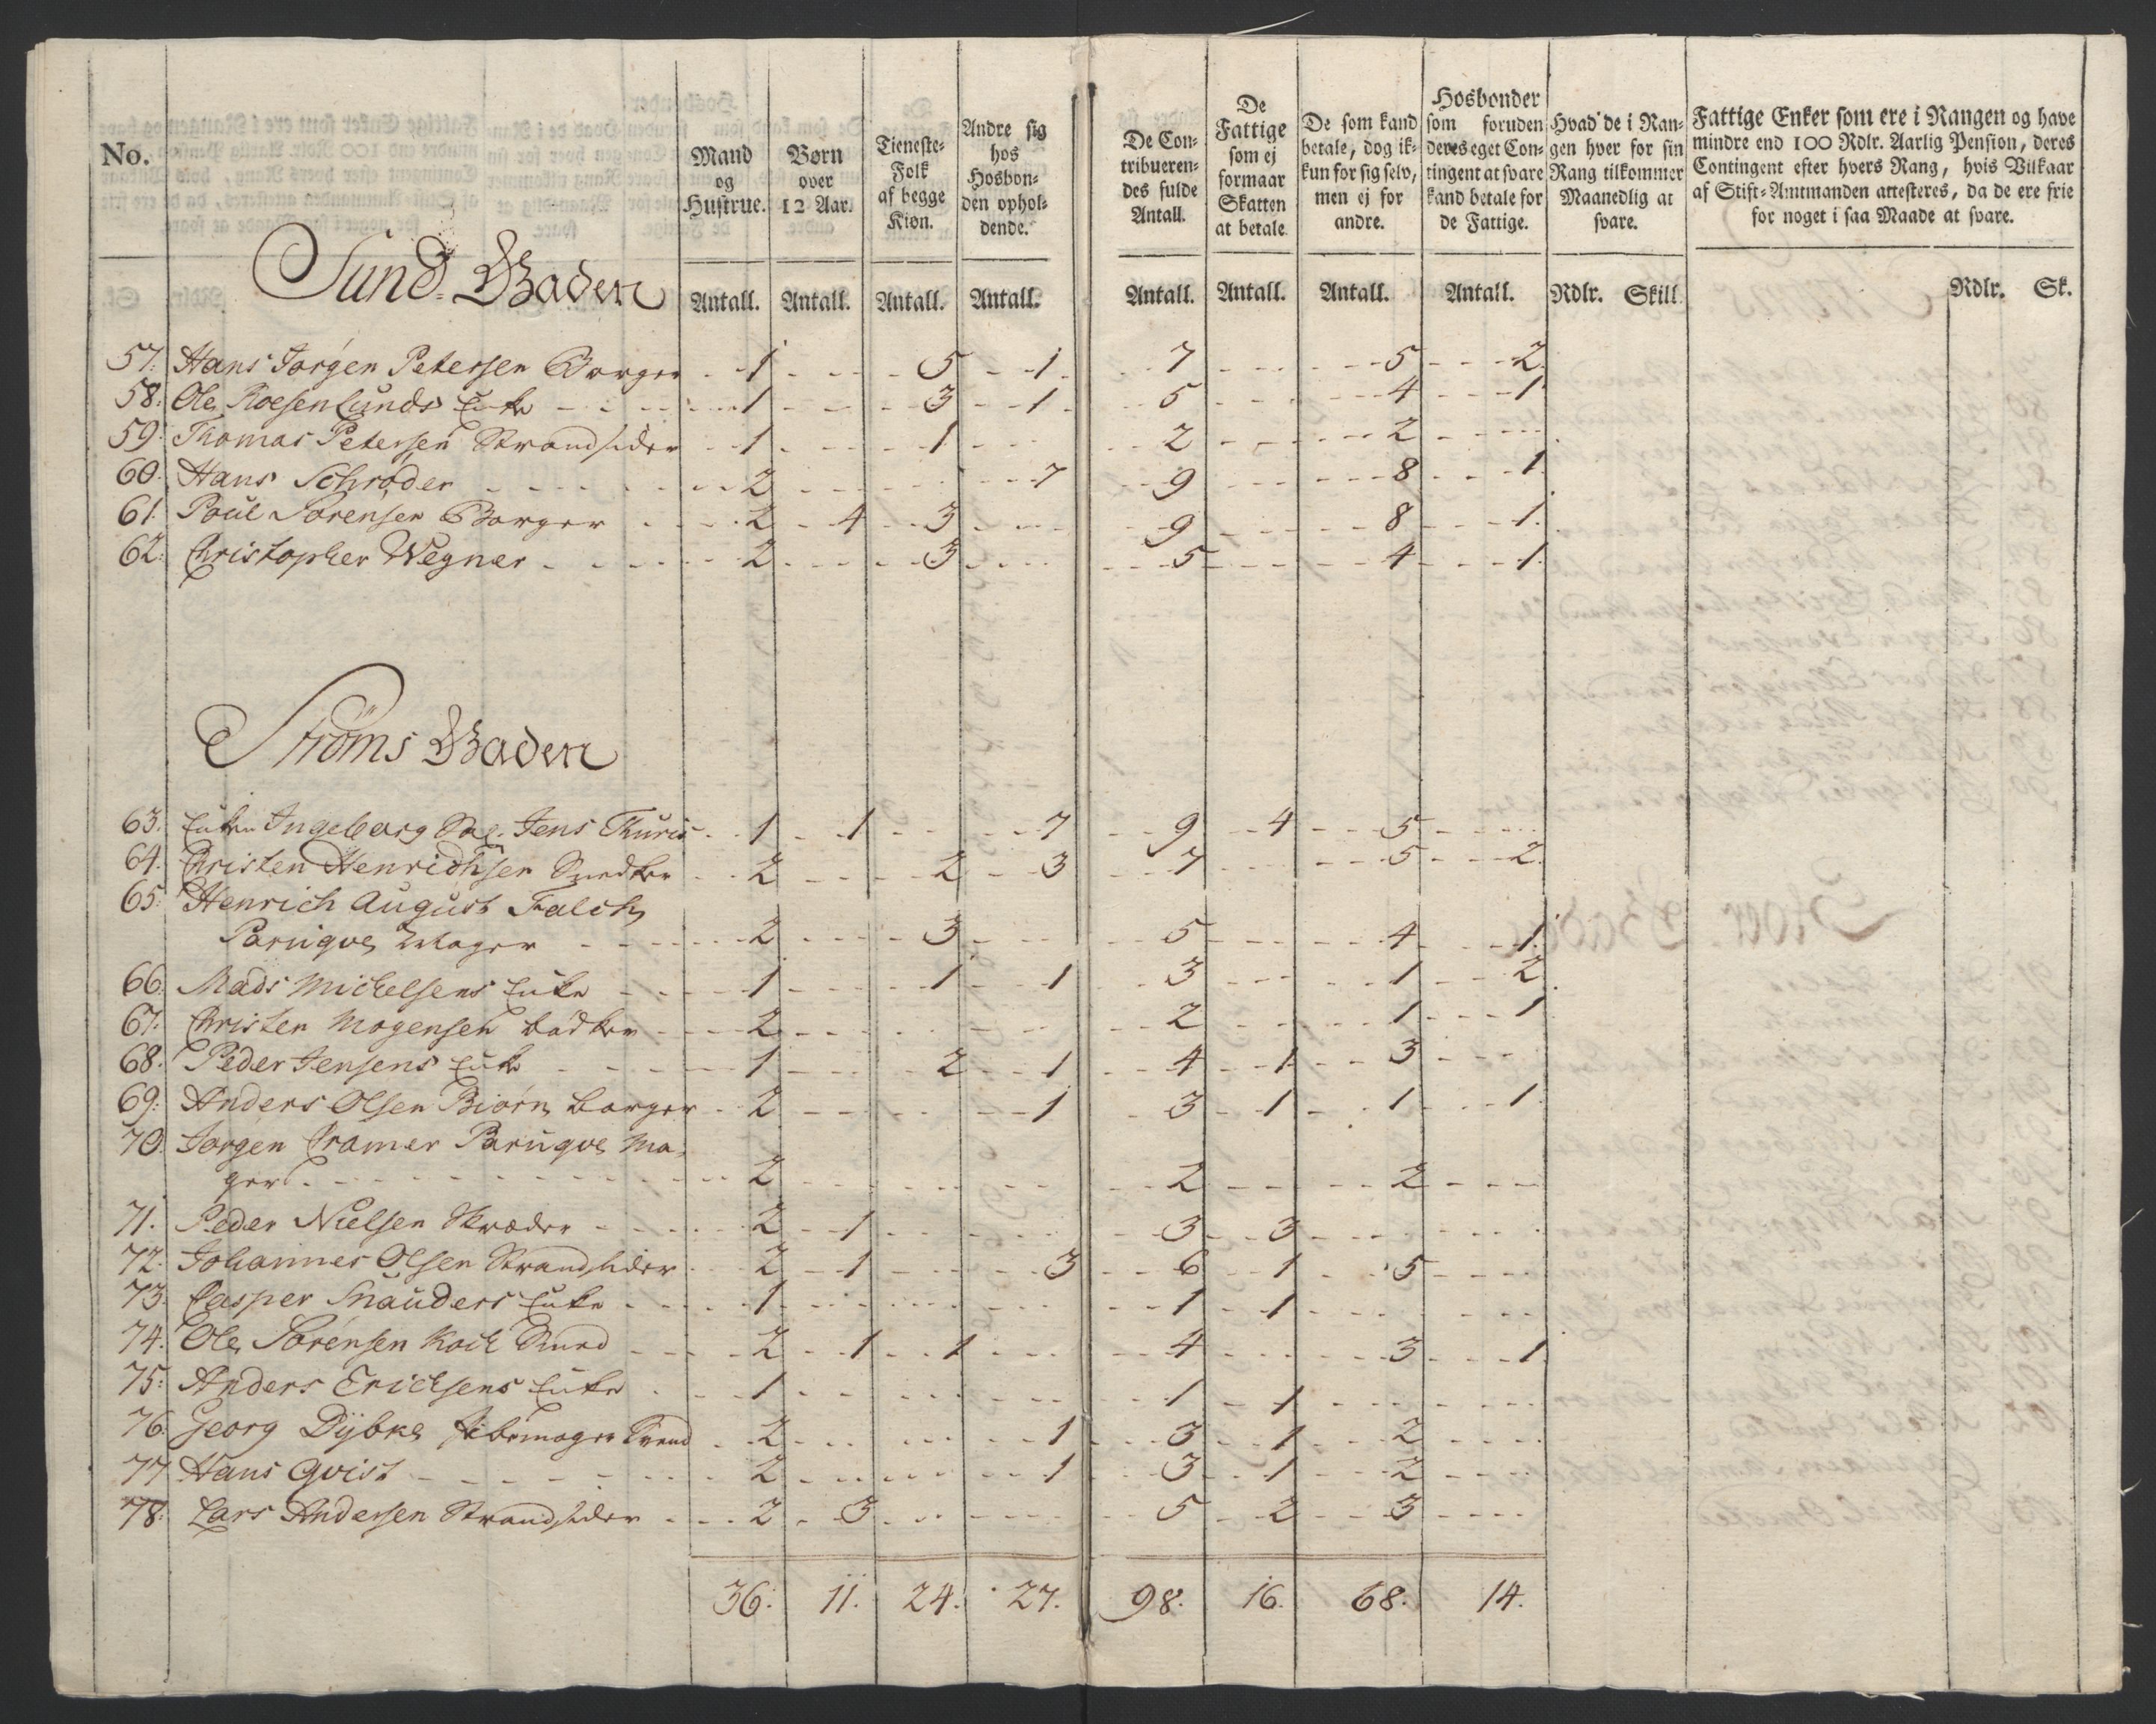 No.
Mand og Hustrue.
Børn over 12 Aar.
Tieneste-Folk af begge Kiøn.
Andre sig hos Hosbon-den ophol-dende.
De Con-tribueren-des fulde Antall.
De Fattige som ej formaar Skatten at betale
De som kand betale, dog ik-kun for sig selv, men ej for andre.
Hosbonder som foruden deres eget Con-tingent at svare kand betale for de Fattige.
Hvad de i Ran-gen hver for sin Rang tilkommer Maanedlig at svare.
Fattige Enker som ere i Rangen og have mindre end 100 Rdlr. Aarlig Pension, deres Contingent efter hvers Rang, hvis Vilkaar af Stift-Amtmanden attesteres, da de ere frie for noget i saa Maade at svare.
Antall. Antall. Antall. Antall. Antall. Antall. Antall. Antall. Rdlr. Skill. Rdlr. Sk.
Sund-Gaden
57. Hans Jørgen Petersen Borger 1 5 1 7 5 2
58. Ole Roesenlunds Enke 1 3 1 5 4 1
59. Thomas Petersen Strandsider 1 1 2 2
60. Hans Schrøder 2 7 9 8 1
61. Poul Sørensen Borger 2 4 3 9 8 1
62. Christopher Wegner 2 3 5 4 1
Strøms Gaden
63. Enken Ingeborg Sal. Jens Thuris 1 1 7 9 4 5
64. Christen Henrichsen Snedker 2 2 3 7 5 2
65. Henrich August Falch
Paruqve Mager 2 3 5 4 1
66. Mads Mickelsens Enke 1 1 1 3 1 2
67. Christen Mogensen Bødker 2 2 1 1
68. Peder Jensens Enke 1 2 1 4 1 3
69. Anders Olsen Biørn borger 2 1 3 1 1 1
70. Jørgen Cramer Paruqve Ma-
ger 2 2 2
71. Peder Nielsen Skræder 2 1 3 3
72. Johannes Olsen Strandsider 2 1 3 6 1 5
73. Casper Snauders Enke 1 1 1
74. Ole Sørensen Koch 2 1 1 4 3 1
75. Anders Ericksens Enke 1 1 1
76. Georg Dybke 2 1 3 1 2
77. Hans Qvist 2 1 3 1 2
78. Lars Andersen Strandsider 2 3 5 2 3
36. 11. 24. 27. 98. 16. 68. 14.